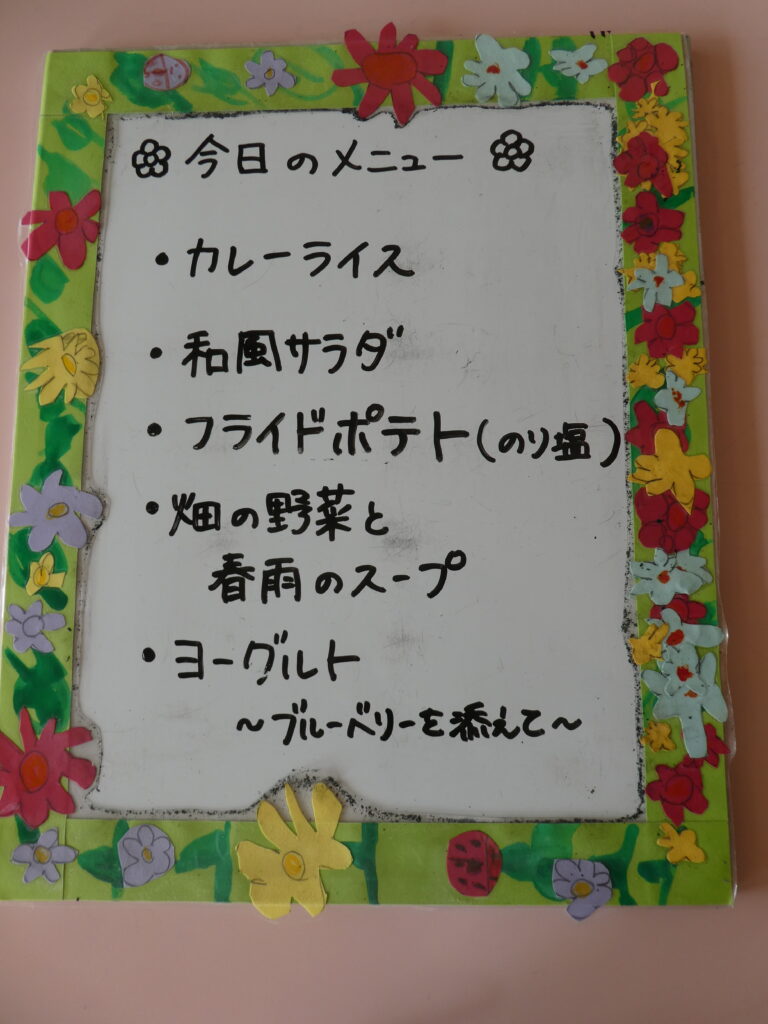 今日のメニュー
・カレーライス
・和風サラダ
・フライドポテト(のり塩)
・畑の野菜と
春雨のスープ
・ヨーグルト
～ブルーベリーを添えて～